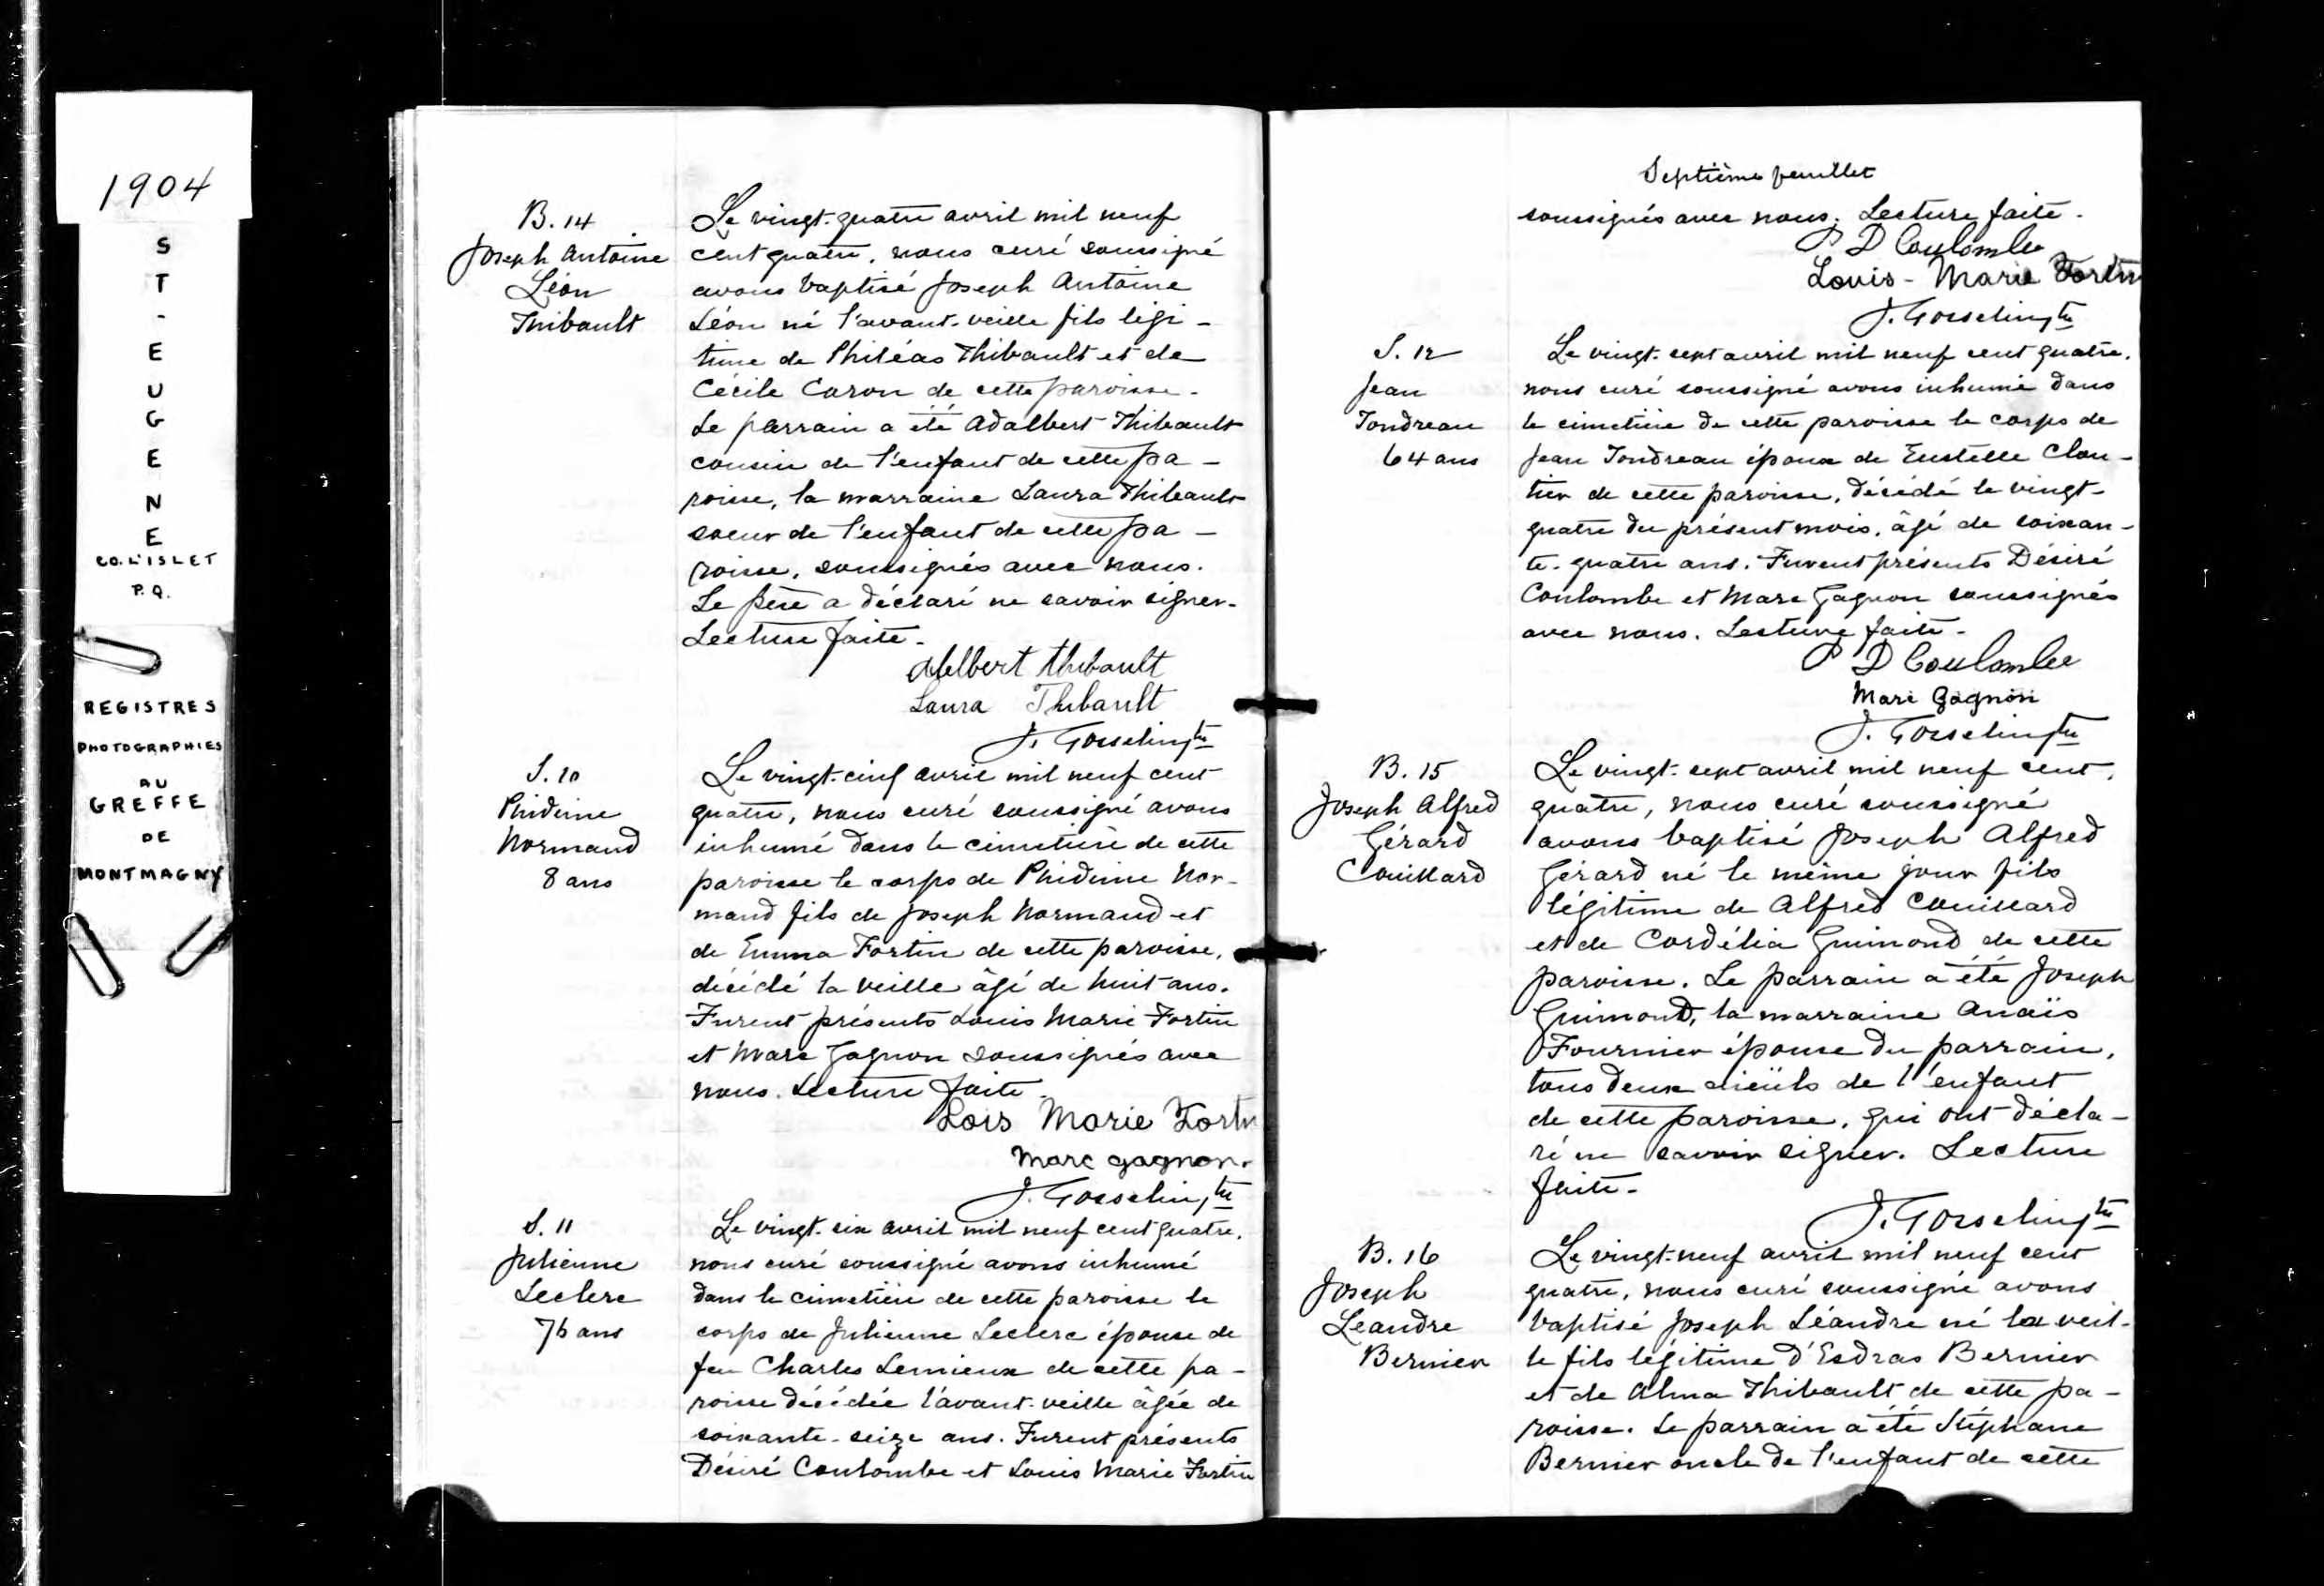 1904
ST-EUGENE
CO. L'ISLET
P.Q.
REGISTRES
PHOTOGRAPHIES
AU
GREFFE
DE
MONTMAGNY
B. 14
Joseph Antoine
Léon
Thibault
Le vingt-quatre avril mil neuf
cent quatre, nous curé soussigné
avons baptisé Joseph Antoine
Léon né l'avant-veille fils légi-
time de Philéas Thibault et de
Cécile Caron de cette paroisse.
Le parrain a été Adalbert Thibault
cousin de l'enfant de cette pa-
roisse, la marraine Laura Thibault
soeur de l'enfant de cette pa-
roisse, soussignés avec nous.
Le père a déclaré ne savoir signer.
Lecture faite.
Adelbert Thibault
Laura Thibault
J. Gosselin ptre
S. 10
Phidime
Normand
8 ans
Le vingt-cinq avril mil neuf cent
quatre, nous curé soussigné avons
inhumé dans le cimetière de cette
paroisse le corps de Phidime Nor-
mand fils de Joseph Normand et
de Emma Fortin de cette paroisse,
décédé la veille âgé de huit ans.
Furent présents Louis Marie Fortin
et Marc Gagnon soussignés avec
nous. Lecture faite.
Lois Marie Fortin
Marc gagnon.
J. Gosselin ptre
S. 11
Julienne
Leclerc
76 ans
Le vingt-six avril mil neuf cent quatre,
nous curé soussigné avons inhumé
dans le cimetière de cette paroisse le
corps de Julienne Leclerc épouse de
feu Charles Lemieux de cette pa-
roisse décédée l'avant-veille âgée de
soixante-seize ans. Furent présents
Désiré Coulombe et Louis Marie Fortin
Septième feuillet
soussignés avec nous. Lecture faite.
P D Coulombe
Louis-Marie Fortin
J. Gosselin ptre
S. 12
Jean
Tondreau
64 ans
Le vingt-sept avril mil neuf cent quatre,
nous curé soussigné avons inhumé dans
le cimetière de cette paroisse le corps de
Jean Tondreau époux de Eustelle Clou-
tier de cette paroisse, décédé le vingt-
quatre du présent mois, âgé de soixan-
te-quatre ans. Furent présents Désiré
Coulombe et Marc Gagnon soussignés
avec nous. Lecture faite.
P D Coulombe
Marc Gagnon
J. Gosselin ptre
B. 15
Joseph Alfred
Gérard
Couillard
Le vingt-sept avril mil neuf cent
quatre, nous curé soussigné
avons baptisé Joseph Alfred
Gérard né le même jour fils
légitime de Alfred Couillard
et de Cordélia Guimond de cette
paroisse. Le parrain a été Joseph
Guimond, la marraine Anaïs
Fournier épouse du parrain,
tous deux aïeüls de l'enfant
de cette paroisse, qui ont décla-
ré ne savoir signer. Lecture
faite.
J. Gosselin ptre
B. 16
Joseph
Léandre
Bernier
Le vingt-neuf avril mil neuf cent
quatre, nous curé soussigné avons
baptisé Joseph Léandre né la veil-
le fils légitime d'Esdras Bernier
et de Alma Thibault de cette pa-
roisse. Le parrain a été Stéphane
Bernier oncle de l'enfant de cette